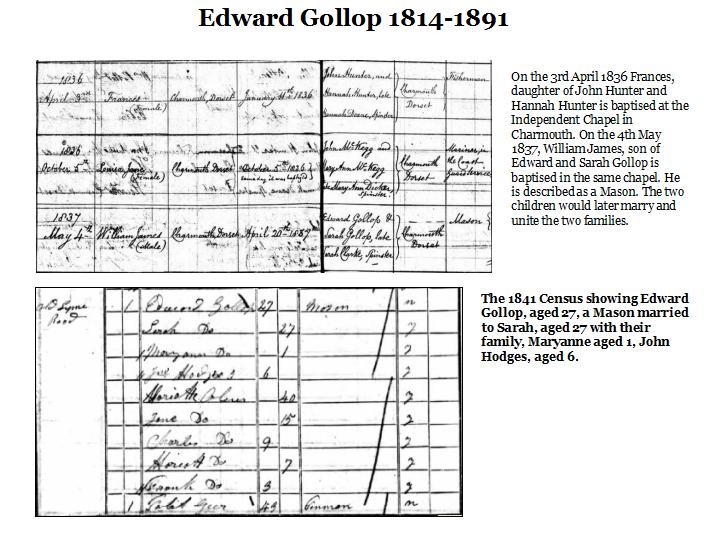 Edward Gollop 1814-1891
On the 3rd April 1836 Frances,
daughter of John Hunter and
Hannah Hunter is baptised at the
Independent Chapel in
Charmouth. On the 4th May
1837, William James, son of
Edward and Sarah Gollop is
baptised in the same chapel. He
is described as a Mason. The two
children would later marry and
unite the two families.
1836
April 3rd Frances (Female) Charmouth, Dorset January 11th 1836 John Hunter, and Hannah Hunter, late Hannah Spinster Charmouth Dorset Fisherman
1836
October 5th Louisa Jane (Female) Charmouth Dorset October 5th 1836 John and Mary Ann Mary Ann Spinster Charmouth Dorset Mariner in the Coast Guard Service
1837
May 4th William James (Male) Charmouth Dorset April 20th 1837 Edward Gollop & Sarah Gollop, late Sarah Clarke, Spinster Charmouth Dorset Mason
The 1841 Census showing Edward
Gollop, aged 27, a Mason married
to Sarah, aged 27 with their
family, Maryanne aged 1, John
Hodges, aged 6.
Old Lyme Road 1 Edward Gollop 27 Mason n
Sarah Do 27
Maryann Do 1
Hodges 6
40
Jane Do 15
Charles Do 9
Do 7
Do 3
1 45 n